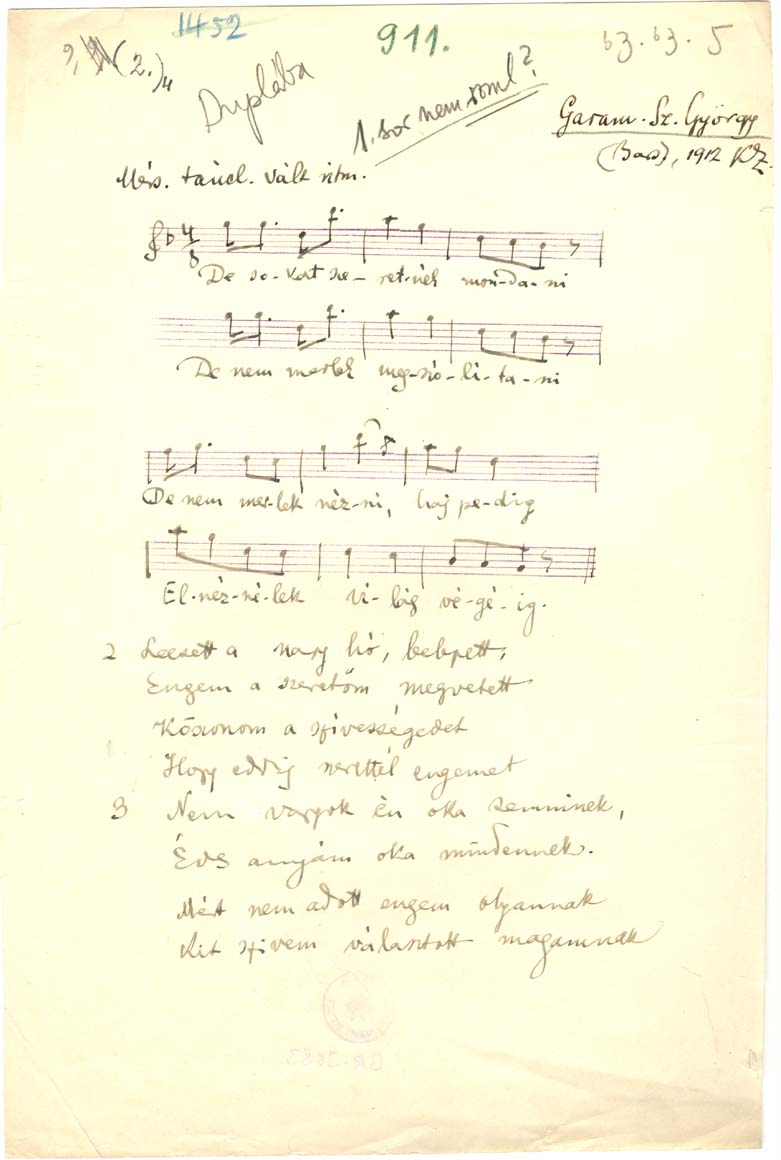 1452
911.
63.63.5
(2.)
Duplába
1. sor nem roml?
Garam-Sz. György
(Bars), 1912 KZ.
Mérs. táncl. vált ritm.
4/8
De so-kat sze-ret-nék mon-da-ni
De nem merlek meg-szó-lí-ta-ni
De nem mer-lek néz-ni, haj pe-dig
El-néz-né-lek vi-lág vé-gé-ig.
2 Leesett a nagy hó, belepett,
Engem a szeretőm megvetett
Köszönöm a szivességedet
Hogy eddig szerettél engemet
3 Nem vagyok én oka semminek,
Édes anyám oka mindennek.
Mért nem adott engem olyannak
Kit szivem választott magamnak